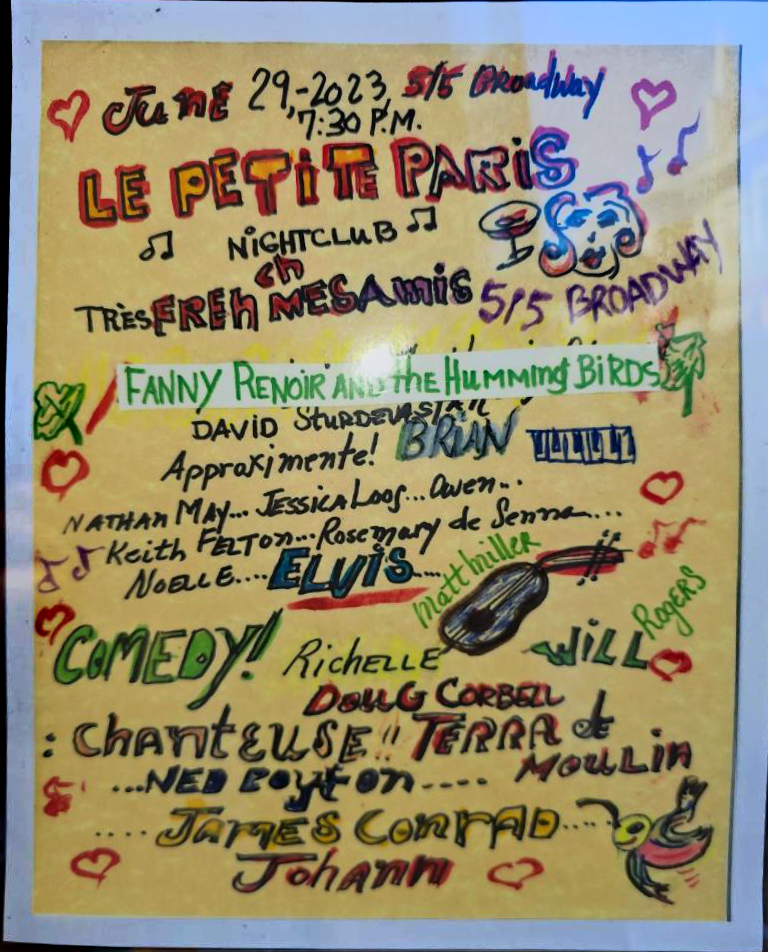 June 29, -2023, 515 Broadway
7:30 P.M.
LE PETITE PARIS
NIGHTCLUB
ch
TRÈS FREH MES AMIS 515 BROADWAY
FANNY RENOIR AND the HUMMING BIRDS
DAVID STURDEVANT
Appraximente! BRIAN
NATHAN MAY... JESSICA LOOS... Owen...
Keith FELTON... Rosemary de Senna...
NOELLE.... ELVIS....
Matt Miller
COMEDY! RICHELLE WILL Rogers
DOUG CORBELL
: CHANTEUSE!! TERRA de
MOULIN
...NED BOYTON----
.... JAMES CONRAD...
Johann